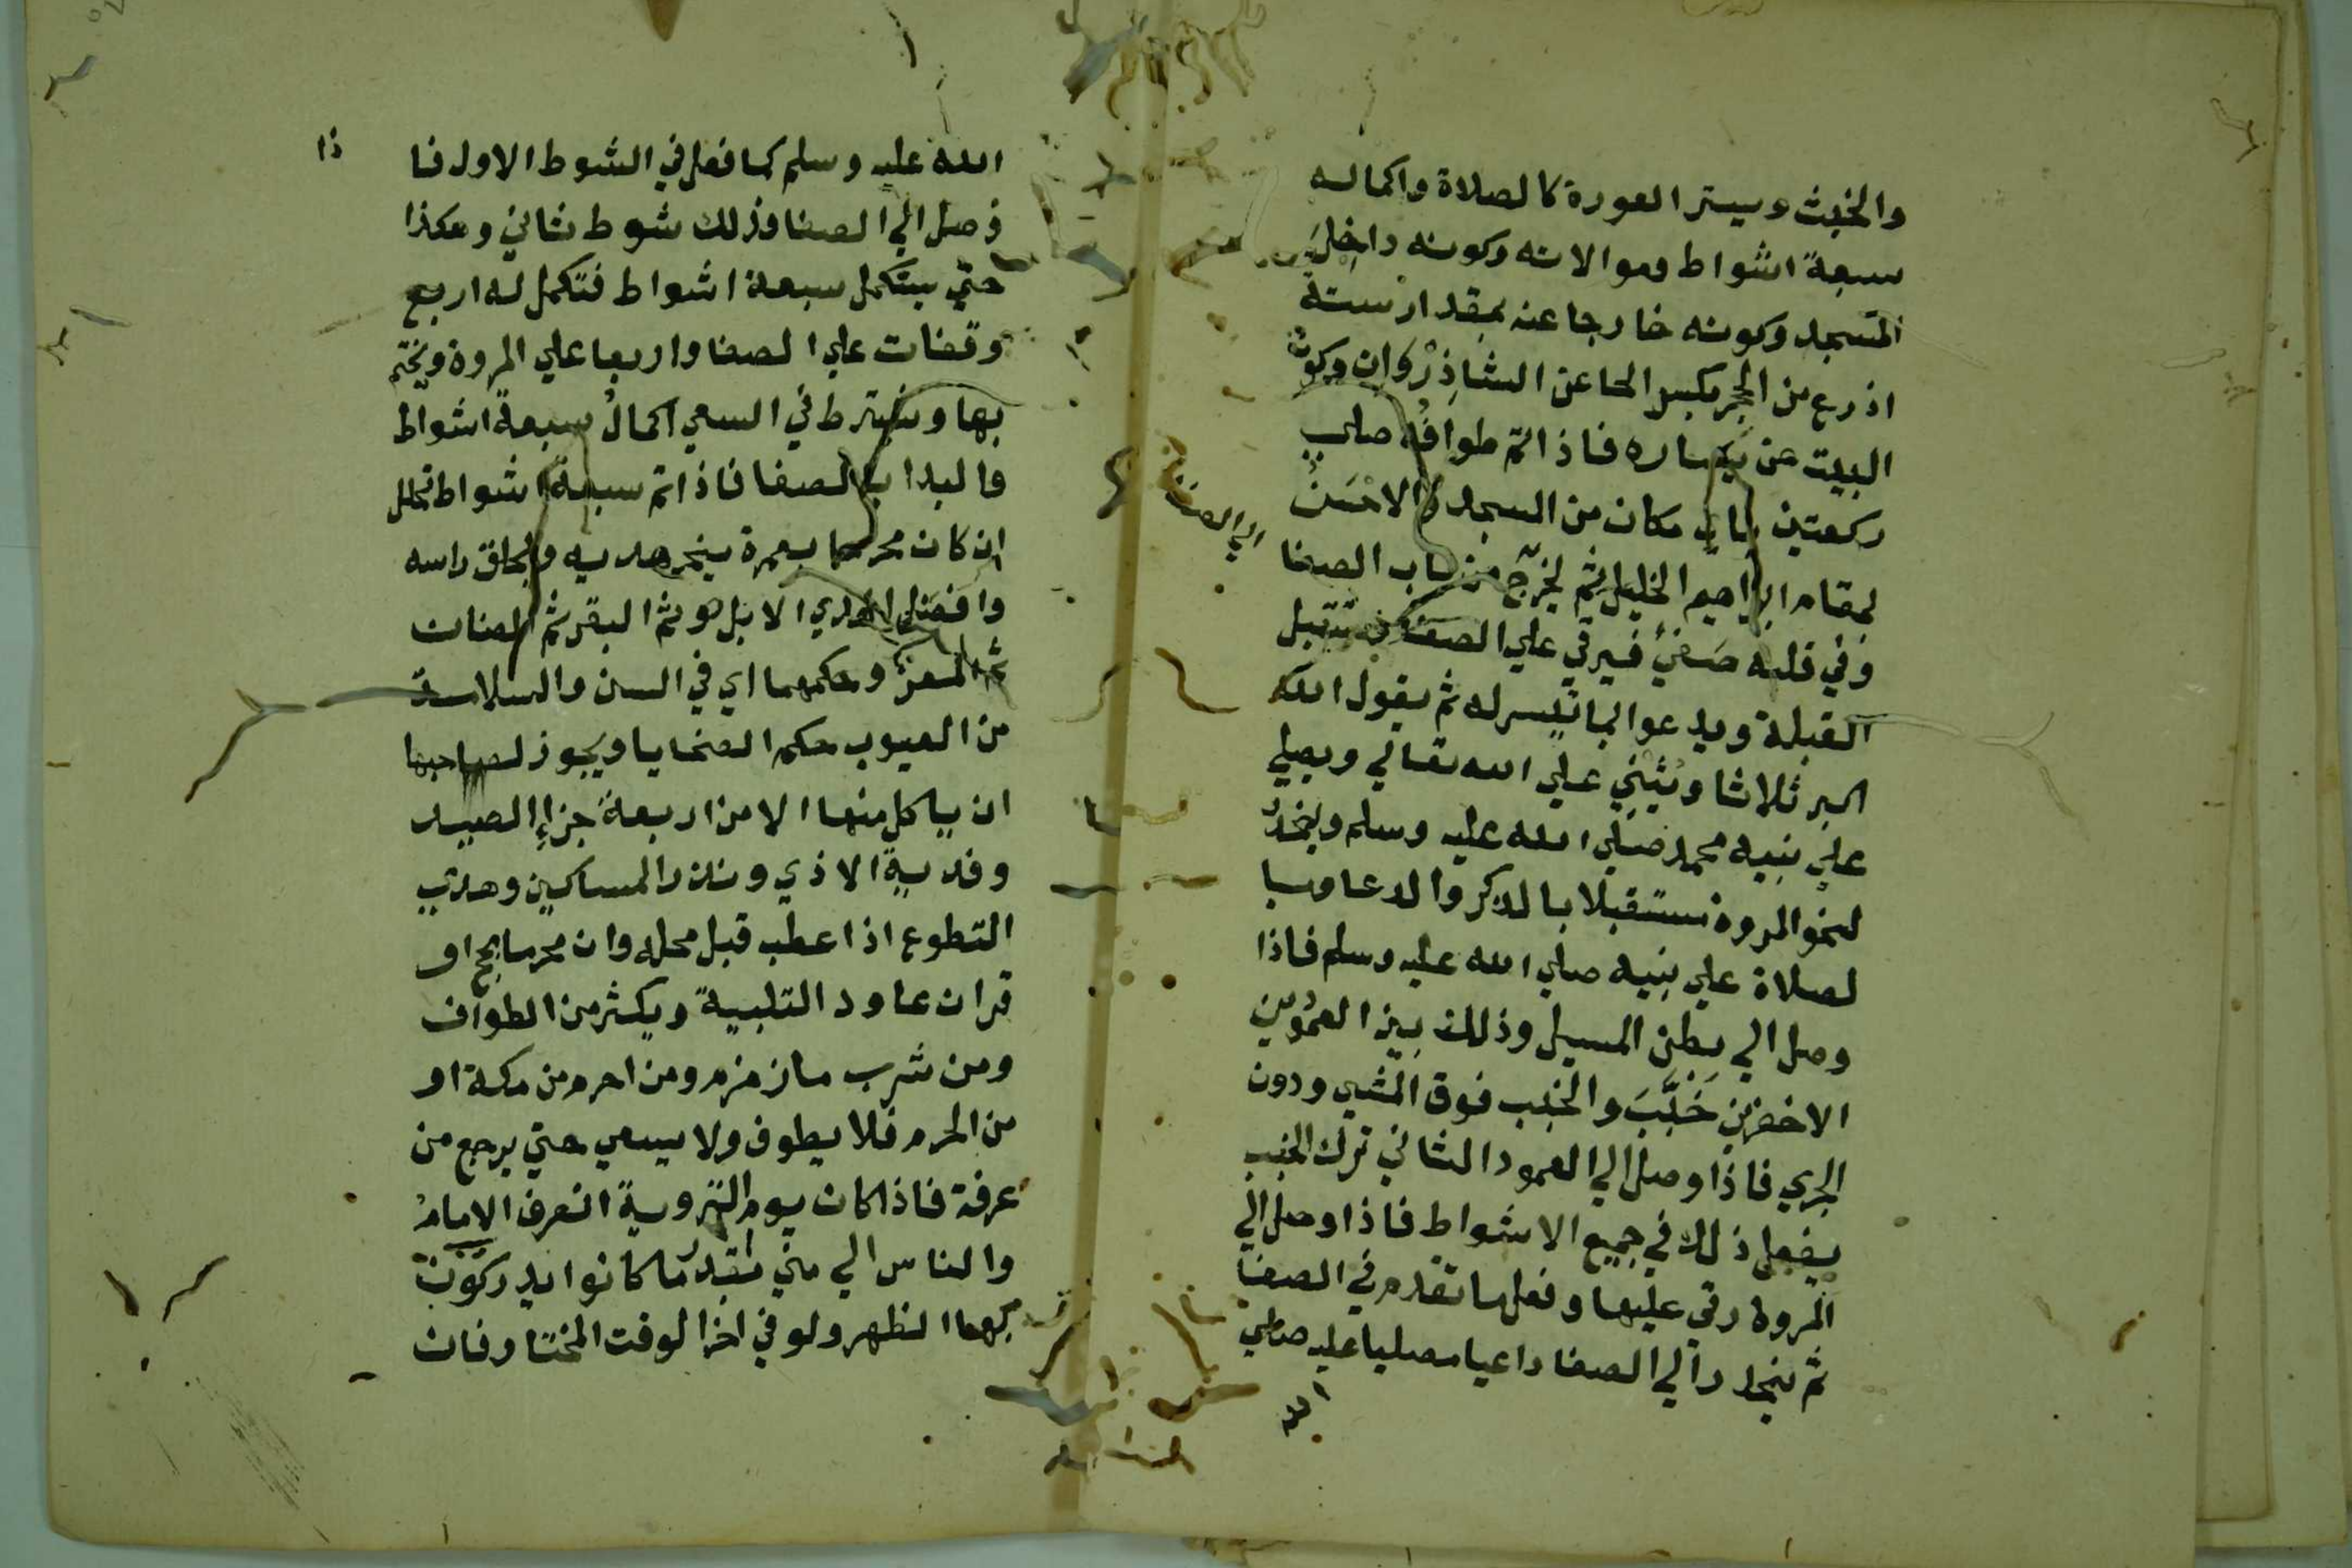 والخبث وسيتر العورة كالصلاة واكماله
سبعة اشواط وموالاته وكونه داخل
المسجد وكونه خارجا عنه بمقدار ستة
اذرع من الحجر بكبسر الحا عن الشاذروان وكون
البيت عن يساره فاذا تم طوافه صلي
ركعتين باي مكان من المسجد والاحسن
بمقام ابراهيم الخليل ثم يخرج من باب الصفا
الي الصفا
وفي قلبه صفي فيرقي علي الصفا
القبلة ويدعوا بما تيسر له ثم يقول الله
اكبر ثلاثا ويثني علي الله تعالي ويصلي
علي نبيه محمد صلي الله عليه وسلم وينحد
لنحو المروة مستقبلا بالذكر والدعا وبا
لصلاة علي نبيه صلي الله عليه وسلم فاذا
وصل الي بطن المسيل وذلك بين العمودين
الاخضرين خبب والخبب فوق المشي ودون
الجري فاذا وصل الي العمود الثاني ترك الخبب
يفعل ذلك في جميع الاشواط فاذا وصل الي
المروة رقي عليها وفعل ما تقدم في الصفا
ثم ينحدر الي الصفا داعيا مصليا عليه صلي
الله
الله عليه وسلم كما فعل في الشوط الاول فا
ذا
وصل الي الصفا فذلك شوط ثاني وهكذا
حتي يستكمل سبعة اشواط فتكمل له اربع
وقفات علي الصفا واربعا علي المروة ويختم
بها ويشترط في السعي اكمال سبعة اشواط
والبدا بالصفا فاذا تم سبعة اشواط تحلل
ان كان محرما بعمرة ينحر هديه ويحلق راسه
وافضل الهدي الابل هو ثم البقر ثم الضان
ثم المعز وحكمهما اي في السن والسلامة
من العيوب حكم الضحايا ويجوز لصاحبها
ان ياكل منها الا من اربعة جزاء الصيد
وفدية الاذي ونذر المساكين وهدي
التطوع اذا عطب قبل محله وان محرما بحج او
قران عاود التلبية ويكثر من الطواف
ومن شرب ما زمزم ومن احرم من مكة او
من الحرم فلا يطوف ولا يسعي حتي يرجع من
عرفة فاذا كان يوم التروية انعرف الامام
والناس الي مني بقدر ما كانوا يدركون
بهما الظهر ولو في اخر الوقت المختار فان